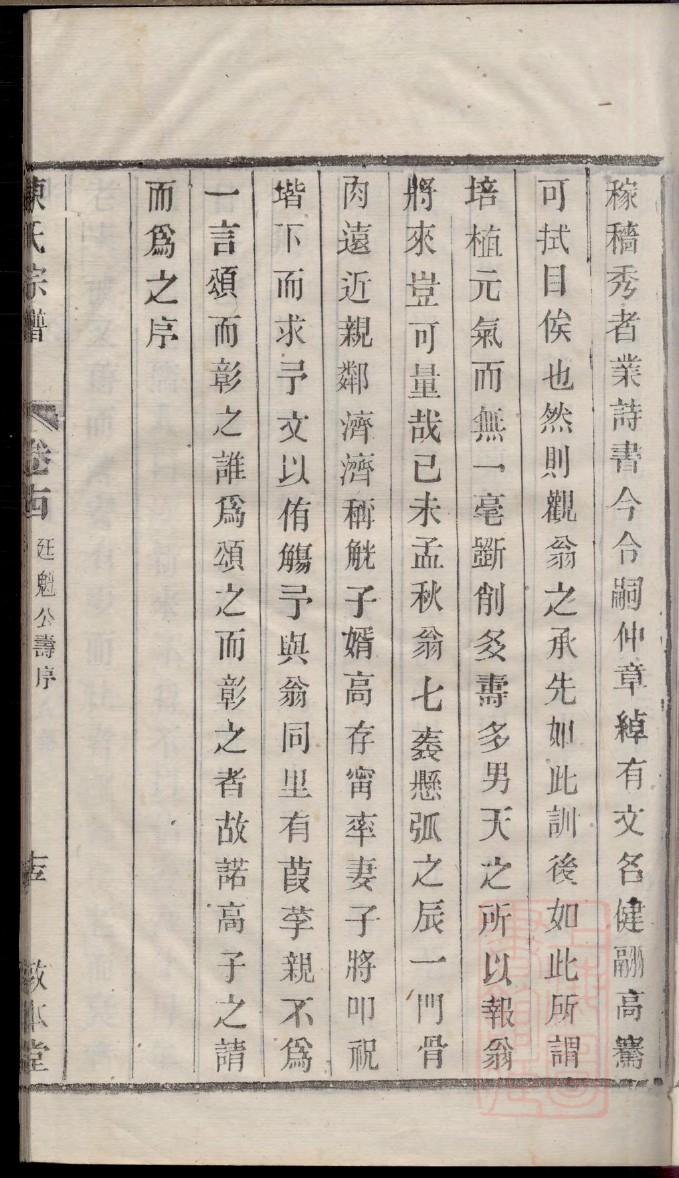 稼穡秀者業詩書今令嗣仲章綽有文名健翮高騫
可拭目俟也然則觀翁之承先如此訓後如此所謂
培植元氣而無一毫斵削多壽多男天之所以報翁
將來豈可量哉已未孟秋翁七袠懸弧之辰一門骨
肉遠近親鄰濟濟稱觥子婿高存甯率妻子將叩祝
堦下而求予文以侑觴予與翁同里有葭莩親不爲
一言頌而彰之誰爲頌之而彰之者故諾高子之請
而爲之序
陳氏宗譜 卷 廷魁公壽序 敦本堂